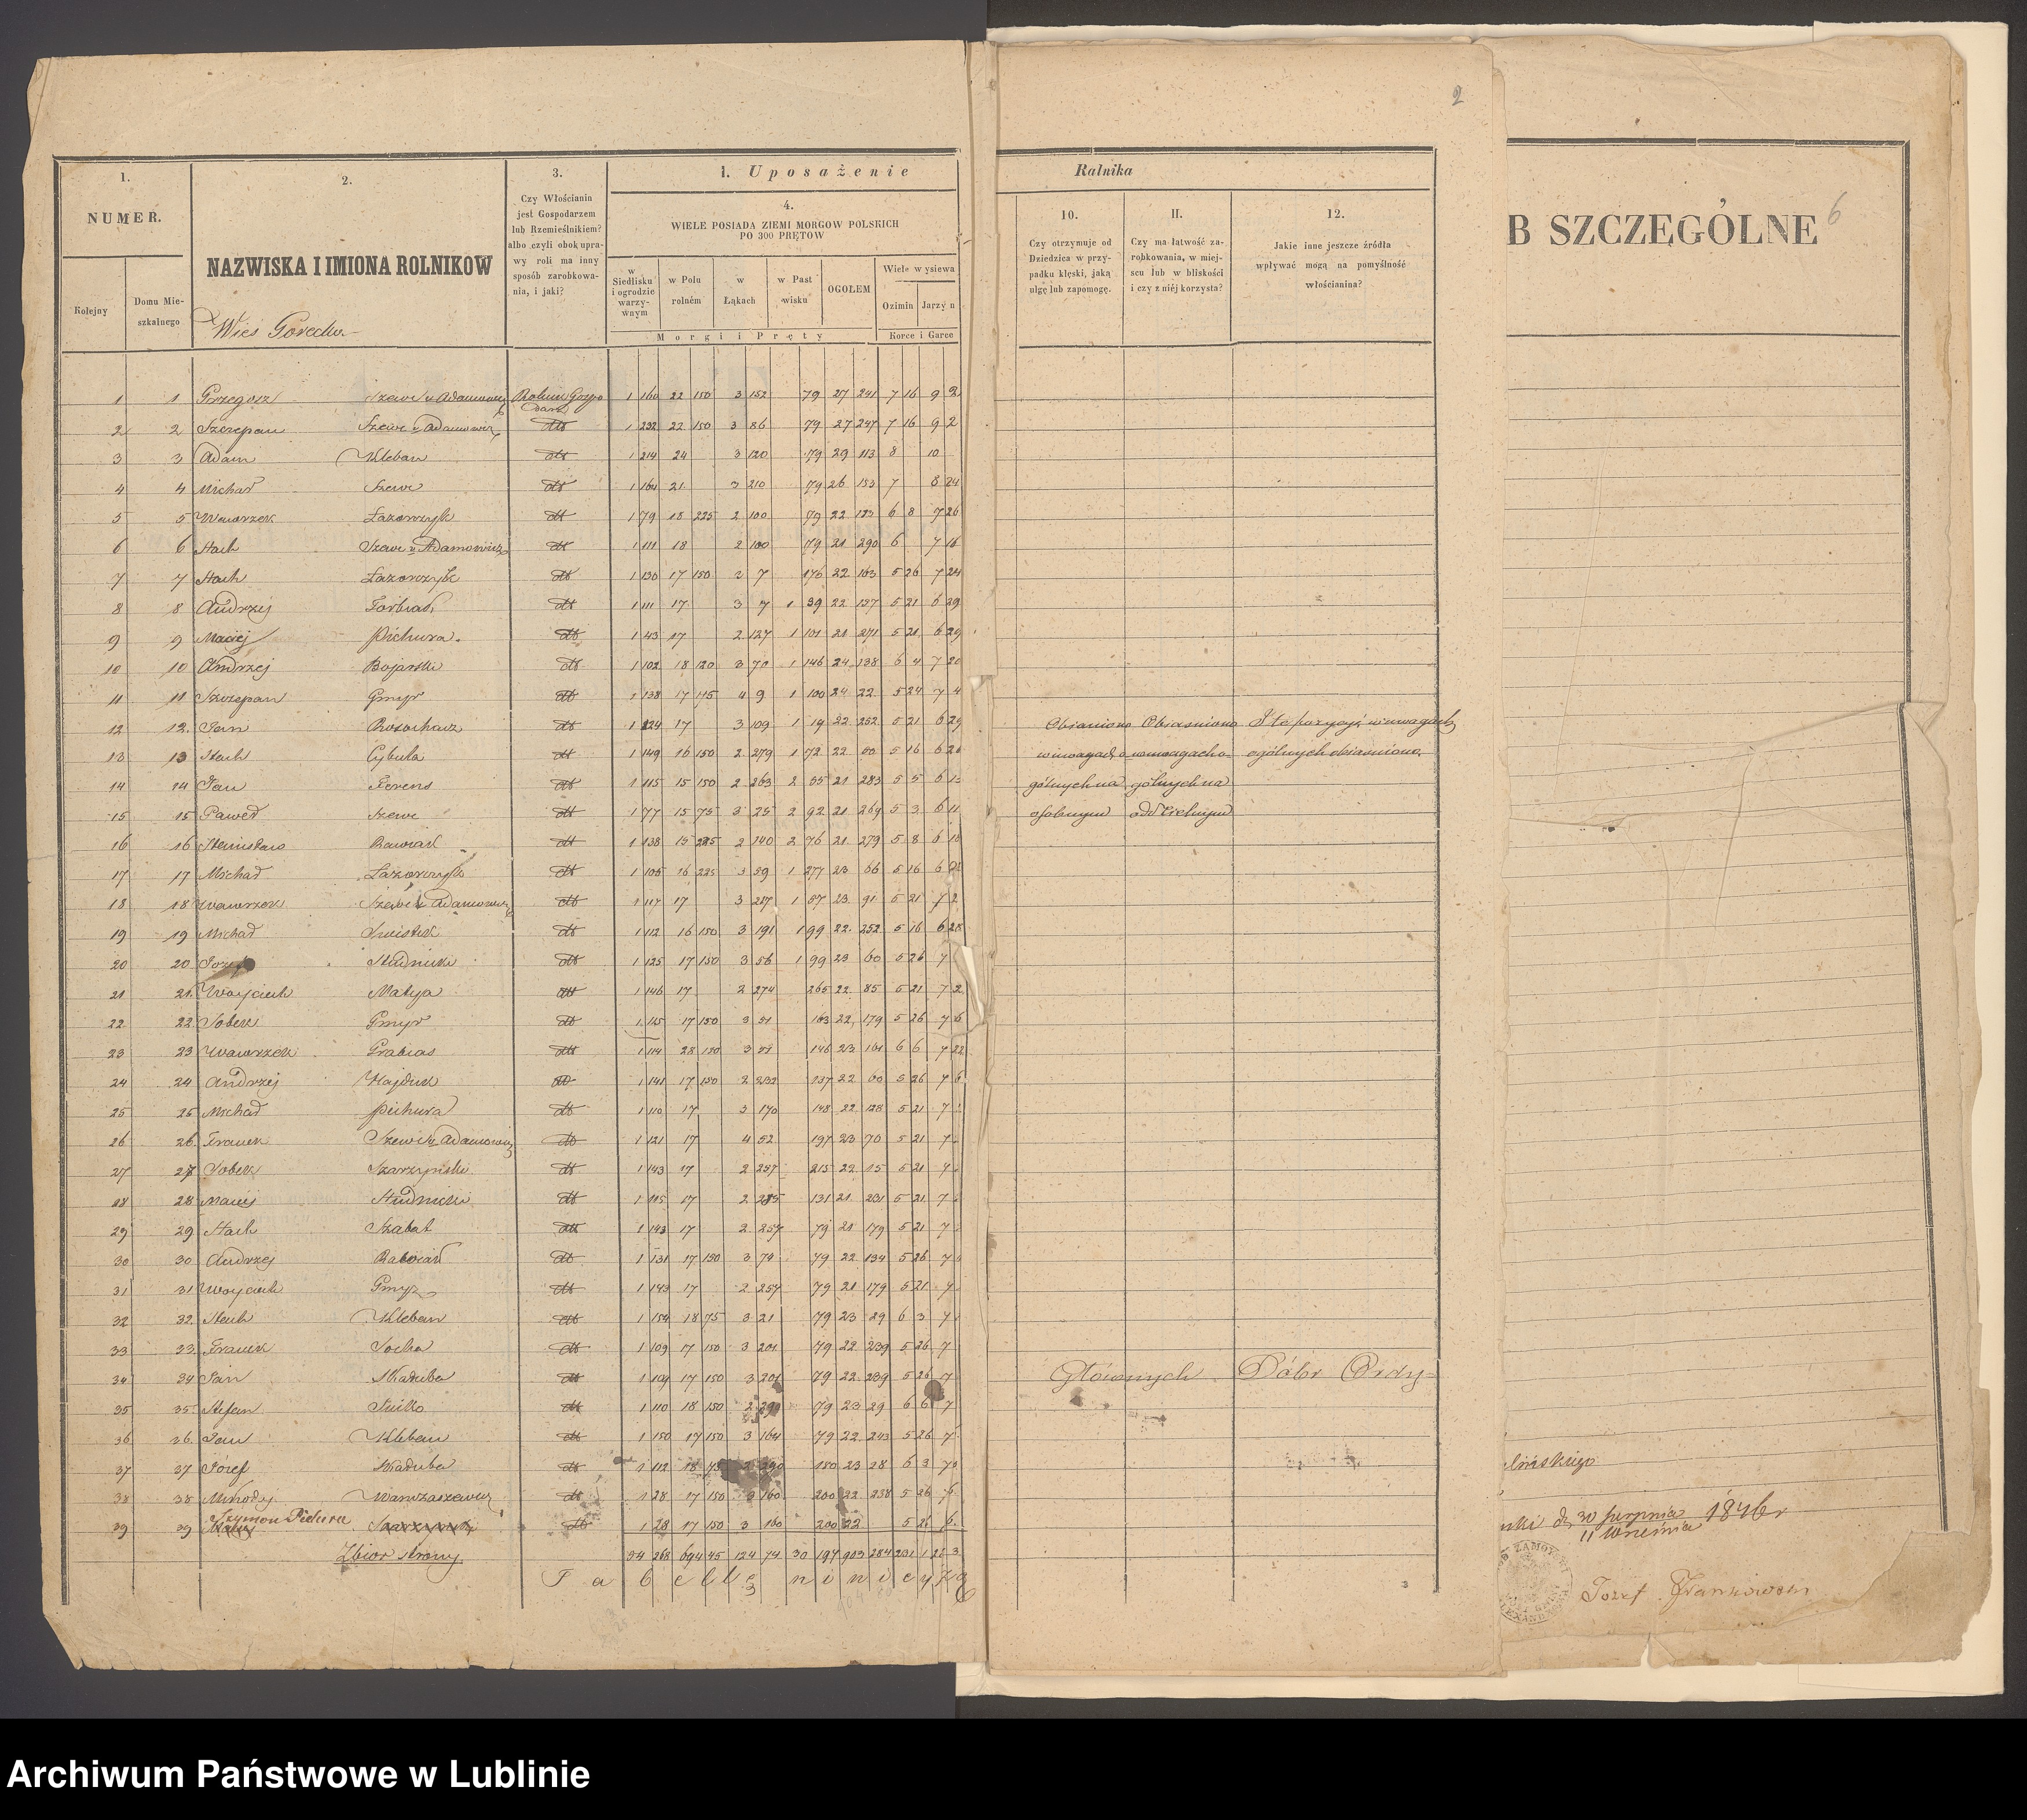 2
1.
2.
3.
1. Uposażenie
Ralnika
NUMER.
NAZWISKA I IMIONA ROLNIKOW
Czy Włościania
jest Gospodarzem
lub Rzemieślnikiem?
albo czyli obok upra-
wy roli ma inny
sposób zarobkowa-
nia, i jaki?
4.
WIELE POSIADA ZIEMI MORGOW POLSKICH
PO 300 PRĘTOW
Kolejny
Domu Mie-
szkalnego
Wieś Gorecko
w
Siedlisku
i ogrodzie
warzy-
wnym
w Polu
rolném
w
Łąkach
w Past
wisku
OGOŁEM
Wiele wysiewa
Ozimin Jarzyn
Morgi i Pręty
Korce i Garce
10.
Czy otrzymuje od
Dziedzica w przy-
padku klęski, jaką
ulgę lub zapomogę.
II.
Czy ma łatwość za-
robkowania, w miej-
scu lub w bliskości
i czy z niéj korzysta?
12.
Jakie inne jeszcze źródła
wpływać mogą na pomyślność
włościanina?
B SZCZEGÓLNE
6
1 1 Grzegorz Szewc v Adamowicz 1 160 22 150 3 152 79 27 241 7 16 9 2
2 2 Szczepan Szewc v Adamowicz dtt 1 232 22 150 3 86 79 27 247 7 16 9 2
3 3 Adam Kleban dtt 1 214 24 3 120 79 29 113 8 10
4 4 Michał Szewc dtt 1 164 21 3 210 79 26 153 7 8 24
5 5 Wawrzek Łazorczyk dtt 1 79 18 225 2 100 79 22 183 6 8 7 26
6 6 Stach Szewc v Adamowicz dtt 1 111 18 2 100 79 21 290 6 7 16
7 7 Stach Łazorczyk dtt 1 130 17 150 2 7 176 22 163 5 26 7 24
8 8 Andrzej dtt 1 111 17 3 7 1 39 22 157 5 21 6 29
9 9 Maciej Pichura dtt 1 43 17 2 127 1 101 21 271 5 21 6 29
10 10 Andrzej Bojarski dtt 1 102 18 120 3 70 1 146 24 138 6 4 7 20
11 11 Szczepan Gmyr dtt 1 138 17 175 4 9 1 100 24 22 5 24 7 4
12 12. Jan dtt 1 124 17 3 109 1 19 22 252 5 21 6 29
13 13 Stach Cybula dtt 1 149 16 150 2 279 1 72 22 5 16 6
14 14 Jan Ferens dtt 1 115 15 150 2 263 2 55 21 283 5 5 6
15 15 Paweł Szewc dtt 1 77 15 75 3 25 2 92 21 269 5 3 6 11
16 16 Stanisław dtt 1 138 15 225 2 140 2 76 21 279 5 8 6
17 17 Michał Łazorczyk dtt 1 105 16 225 3 59 1 277 23 66 5 16 6
18 18 Wawrzek Szewc v Adamowicz dtt 1 117 17 3 217 1 57 23 91 5 21 7 2
19 19 Michał dtt 1 112 16 150 3 191 1 99 22 252 5 16 6 28
20 20 Józef Studnicki dtt 1 125 17 150 3 56 1 99 23 5 26 7
21 21. Woyciech Matyja dtt 1 146 17 2 274 265 22 85 5 21 7 2
22 22 Sobek Gmyr dtt 1 115 17 150 3 51 163 22 179 5 26 7 6
23 23 Wawrzek Grabias dtt 1 114 3 146 23 6 6 7 22
24 24 Andrzej Hajduk dtt 1 141 17 150 2 232 137 22 60 5 26 7 6
25 25 Michał Pichura dtt 1 110 17 3 170 148 22 128 5 21 7
26 26. Franek Szewc v Adamowicz dtt 1 121 17 4 52 197 23 70 5 21 7
27 27 Sobek Szarzyński dtt 1 143 17 2 257 215 22 15 5 21 7
28 28 Maciej Studnicki dtt 1 115 17 2 285 131 21 231 5 21 7
29 29 Stach Szabat dtt 1 143 17 2 257 79 21 179 5 21 7
30 30 Andrzej dtt 1 131 17 150 3 74 79 22 134 5 26 7
31 31 Woyciech Gmyz dtt 1 143 17 2 257 79 21 179 5 21 7
32 32. Stach Kleban dtt 1 154 18 75 3 21 79 23 29 6 3 7
33 33. Franek Socha dtt 1 109 17 150 3 201 79 22 239 5 26 7
34 34 Jan Skaduba dtt 1 109 17 150 3 201 79 22 239 5 26 7
35 35 Stefan dtt 1 110 18 150 2 290 79 23 29 6 6 7
36 36. Jan Kleban dtt 1 150 17 150 3 164 79 22 243 5 26 7
37 37 Józef Skaduba dtt 1 112 18 75 2 290 150 23 28 6 3 7
38 38 Mikołaj Wawrzaszewicz dtt 1 28 17 150 3 160 200 22 238 5 26 7
39 39 Szymon Pichura dtt 1 28 17 150 3 160 200 22 5 26
Zbior strony 54 268 694 45 124 74 30 197 903 284 231 1
Tabellę niniejszą
Obiasniono
w uwagach o-
gólnych na
osobnym
Obiasniono
w uwagach o-
gólnych na
oddzielnym
I te pozycyi w uwagach
ogólnych obiasniono.
Głównych Dóbr Ordy-
lińskiego
ski d. 30 sierpnia 1846 r
11 Września
Józef
3
Archiwum Państwowe w Lublinie